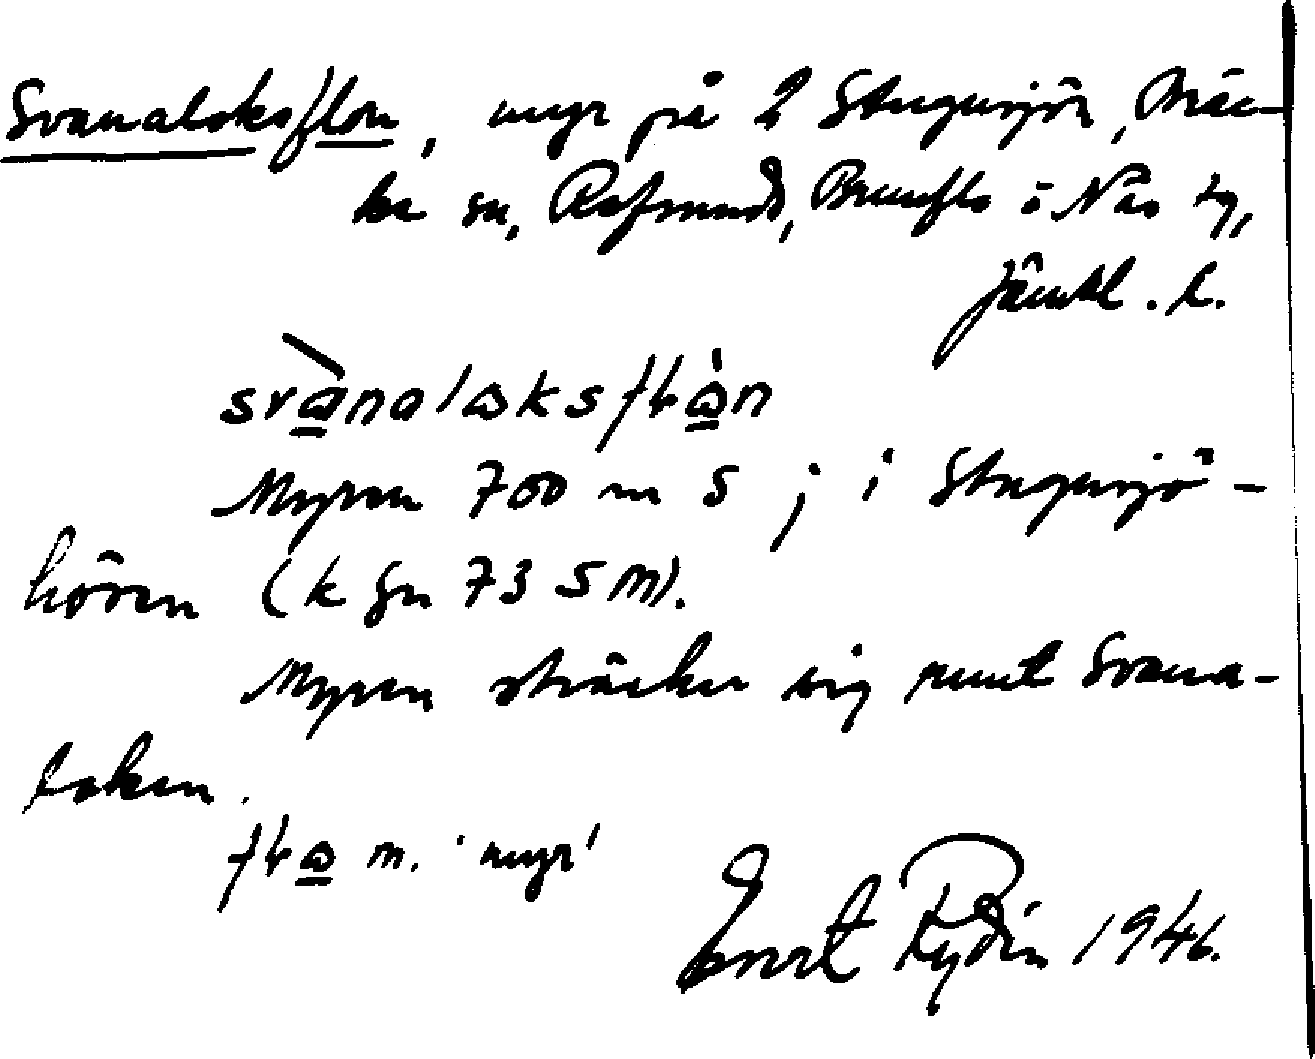 Svanaloksflon, myr på 2 Stugusjön, Näc-
ka sn, Refsunds, Brunflo o Näs tg,
Jämtl. l.
svànalɷksfɫɷ̀n
Myren 700 m S j i Stugusjö-
hören (k fn 73 5 m).
Myren sträcker sig runt Svana-
loken.
fɫɷ m. 'myr'
Evert Rydin 1946.